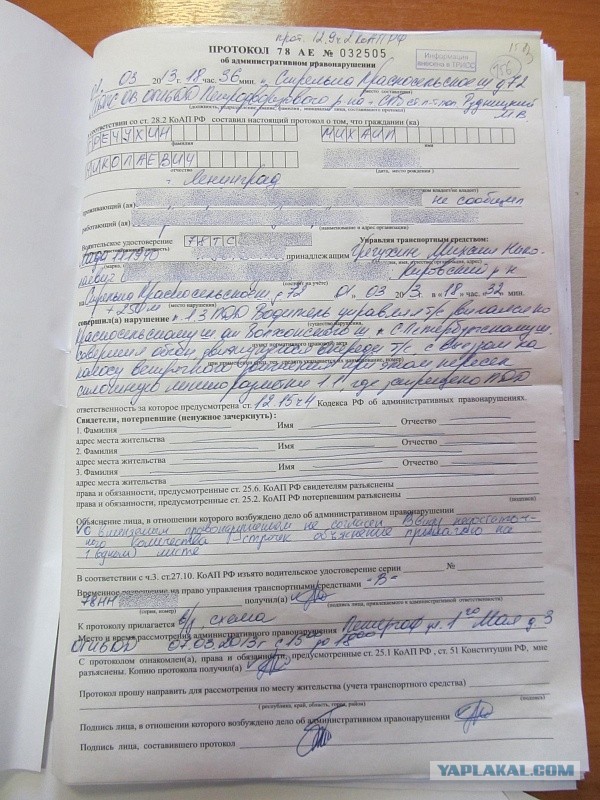 прот. 12.9ч2 КоАП РФ
ПРОТОКОЛ 78 АЕ № 032505
об административном правонарушении
Информация
внесена в ТРИОС
01. 03 2013. 18 час. 36 мин. Стрельна Красносельское ш д 72
ОГИБДД Петродворцового р-на СПб
соответствии со ст. 28.2 КоАП РФ составил настоящий протокол о том, что гражданин (ка)
МИХАИЛ
фамилия
НИКОЛАЕВИЧ
отчество (дата, место рождения)
г. Ленинград
проживающий (ая) не сообщил
работающий (ая)
(наименование и адрес организации)
Водительское удостоверение 78ТС Управляя транспортным средством:
принадлежащим Михаил Нико-
лаевич Кировский р-н
(состоит на учёте)
на Стрельна Красносельское ш д 72 01 03 2013. в «18» час. 32 мин.
+ 250 м
совершил(а) нарушение п. 1.3 ПДД Водитель управляя т/с двигался по
Красносельскому ш от Волхонского ш к С-Петербургскому ш.
совершил обгон движущегося впереди т/с, с выездом на
полосу встречного движения при этом пересек
сплошную линию разметки 1.1 где запрещено ПДД
ответственность за которое предусмотрена ст. 12.15ч4 Кодекса РФ об административных правонарушениях.
Свидетели, потерпевшие (ненужное зачеркнуть) :
1. Фамилия Имя Отчество
адрес места жительства
2. Фамилия Имя Отчество
адрес места жительства
3. Фамилия Имя Отчество
адрес места жительства
права и обязанности, предусмотренные ст. 25.6. КоАП РФ свидетелям разъяснены
права и обязанности, предусмотренные ст. 25.2. КоАП РФ потерпевшим разъяснены
(подпись)
Объяснение лица, в отношении которого возбуждено дело об административном правонарушении
С вменяемым правонарушением не согласен. Ввиду недостаточ-
ного количества строчек объяснение прилагаю на
1 (одном) листе
В соответствии с ч.3. ст.27.10. КоАП РФ изъято водительское удостоверение серии №
Временное разрешение на право управления транспортными средствами -В-
78НН получил(а)
(серия, номер) (подпись лица, привлекаемого к административной ответственности)
К протоколу прилагается в/у схема
Место и время рассмотрения административного правонарушения Петергоф ул. 1го Мая д. 3
ОГИБДД 07.03.2013г с 15 00 до 18 00
С протоколом ознакомлен(а), права и обязанности, предусмотренные ст. 25.1 КоАП РФ , ст. 51 Конституции РФ, мне
разъяснены. Копию протокола получил(а)
Протокол прошу направить для рассмотрения по месту жительства (учета транспортного средства)
(республика, край, область, город, район) (подпись)
Подпись лица, в отношении которого возбуждено дело об административном правонарушении
Подпись лица, составившего протокол
YAPLAKAL.COM